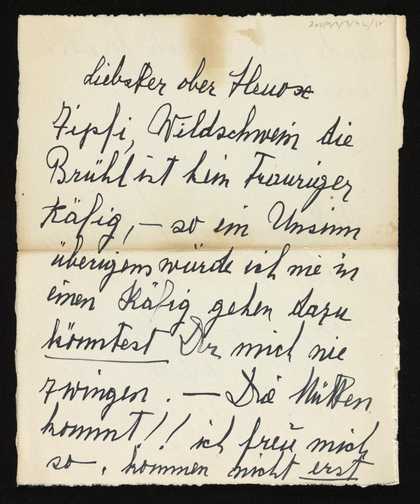 Liebster ober Heuox
Zipfi, Wildschwein die
Brühl ist kein Trauriger
Käfig, – so ein Unsinn
überigens würde ich nie in
einen Käfig gehen dazu
könntest Du mich nie
zwingen. – Die Mutter
kommt!! ich freu mich
so. kommen nicht erst